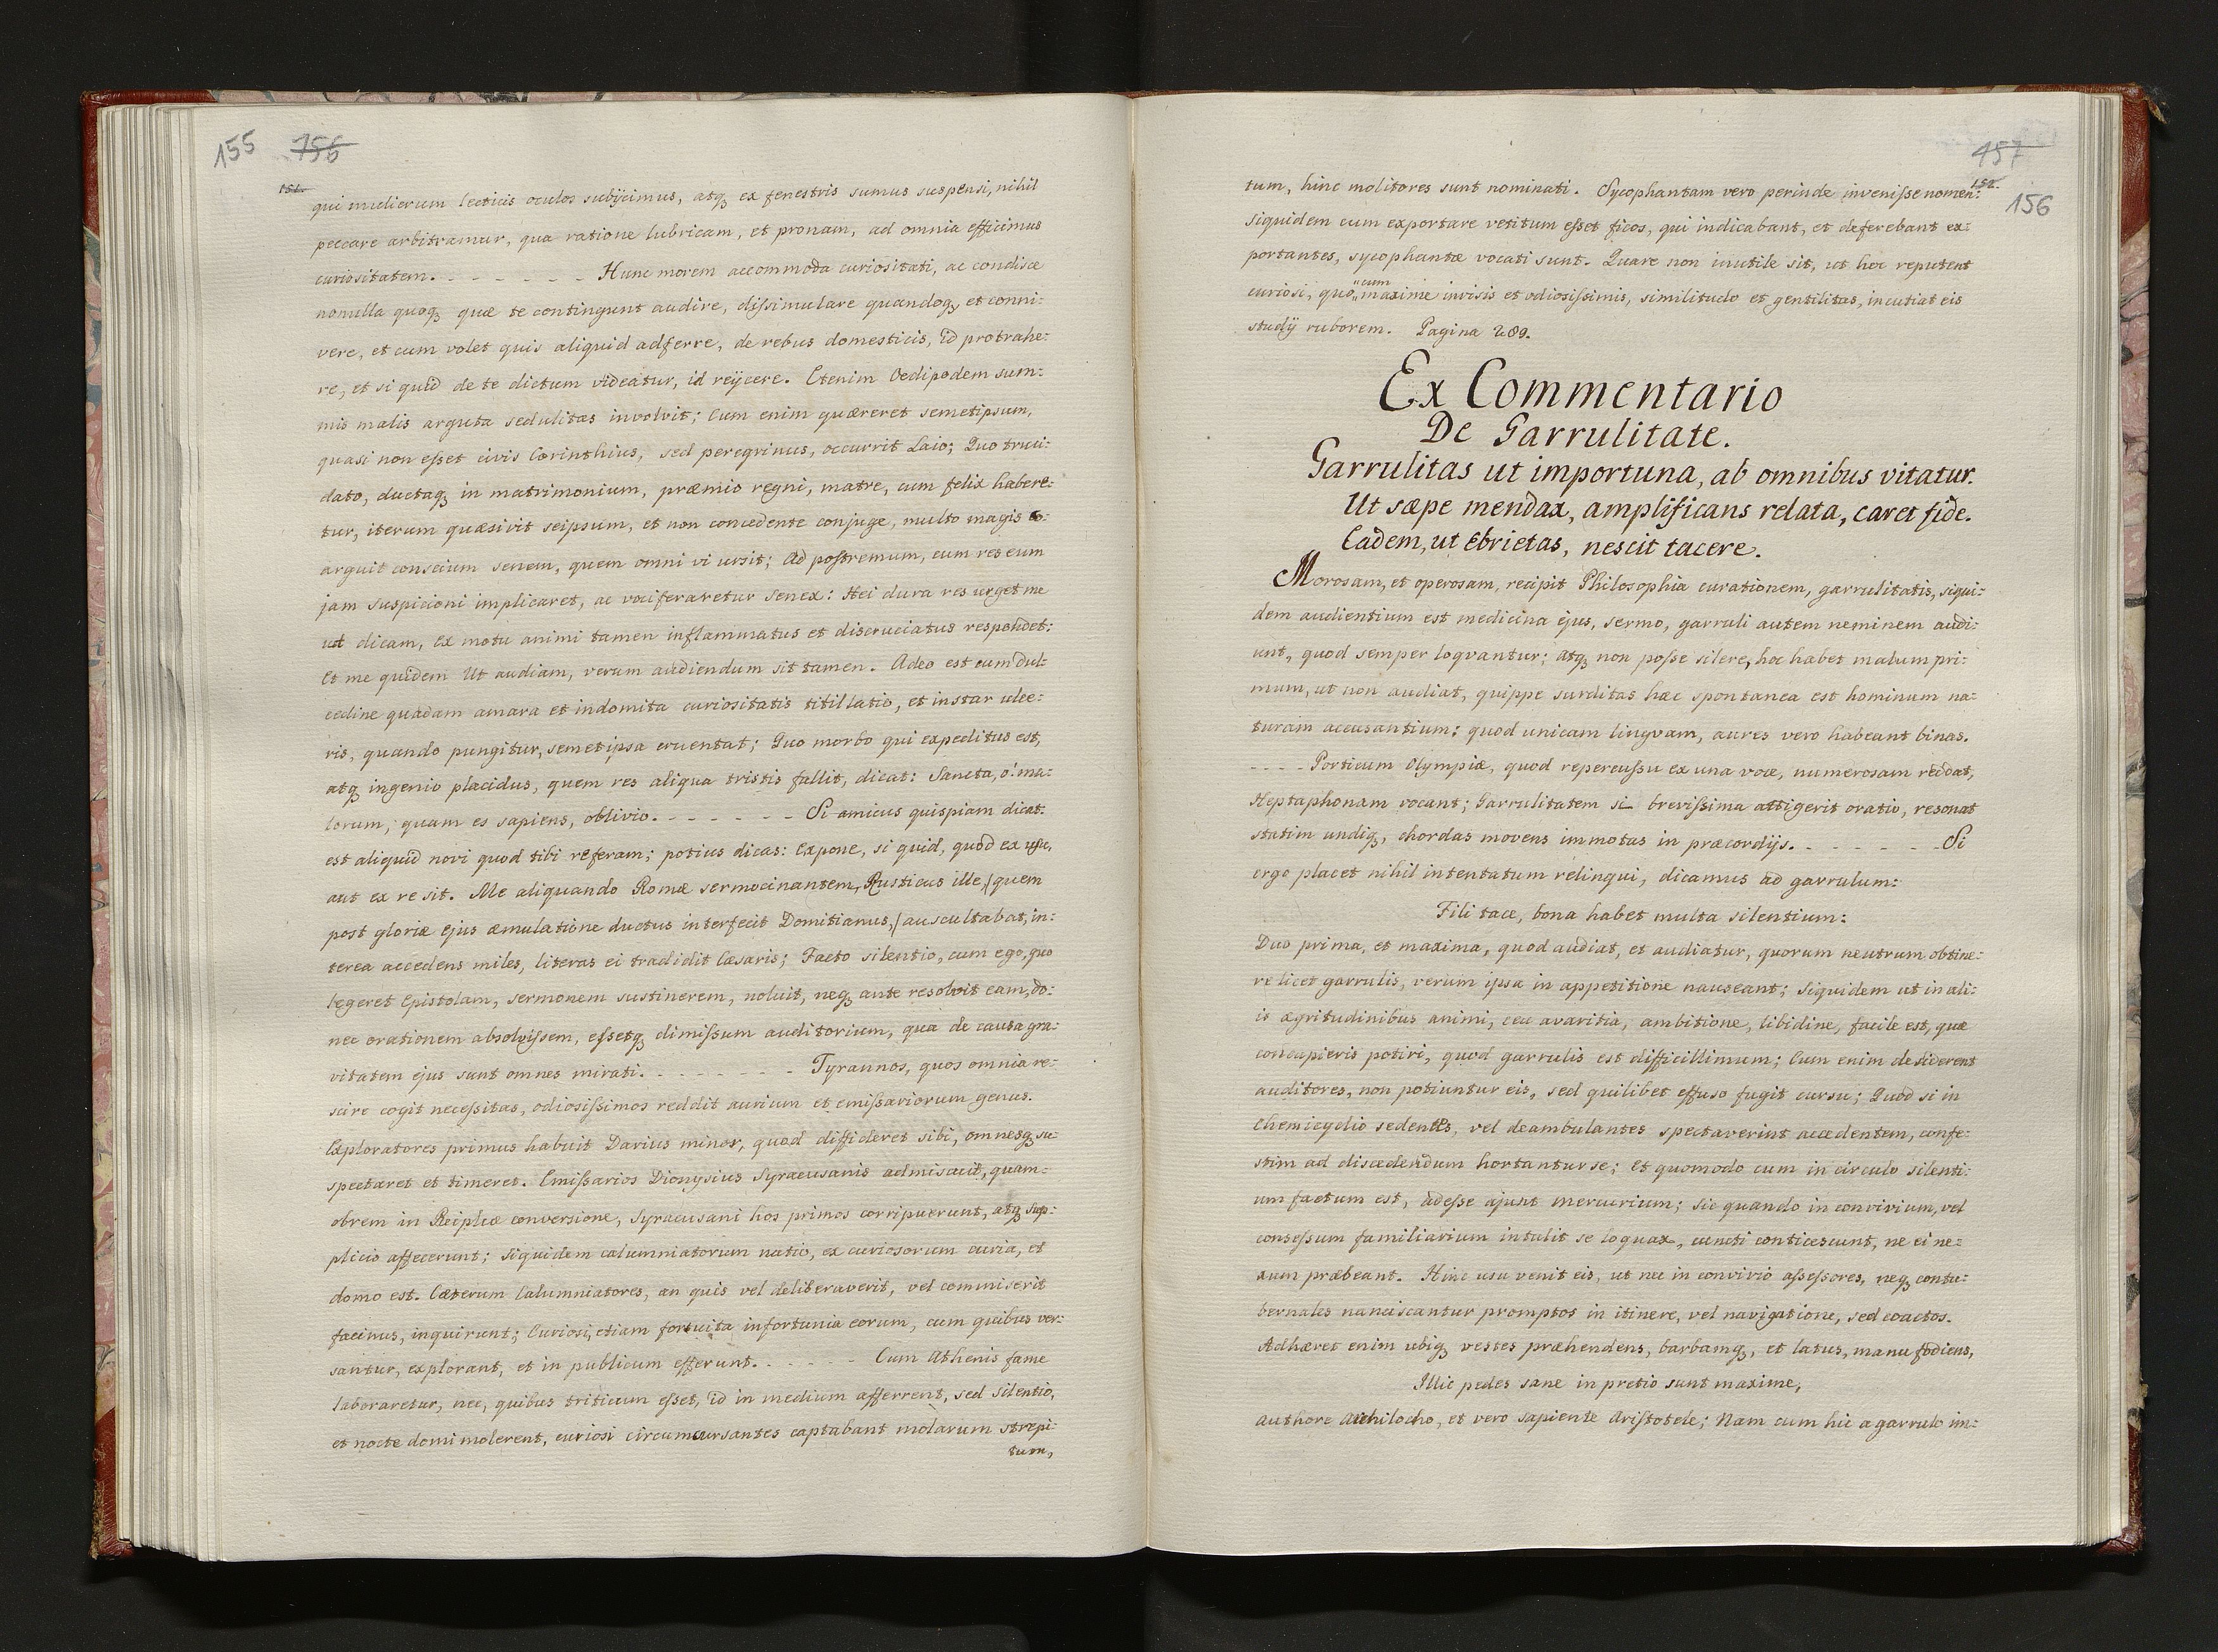 155 756
151.
qui mulierum lecticis oculos subÿcimus, atq, ex fenestris sumus suspensi, nihil
peccare arbitramur, qua ratione lubricam, et pronam, ad omnia efficimus
curiositatem. - - - - - - - Hunc morem accommoda curiositati, ac condisce
nonulla quoq, quæ te contingunt audire, dissimulare quandoq, et conni:
vere, et cum volet quis aliquid adferre, de rebus domesticis, id protrahe:
re, et si quid de te dictum videatur, id reÿcere. Etenim Oedipodem sum:
mis malis arguta sedulitas involvit; Cum enim quæreret semetipsum,
quasi non esset civis Corinthius, sed peregrinus, occurrit Laio; Quo truci:
dato, ductaq, in matrimonium, præmio regni, matre, cum felix habere:
tur, iterum quæsivit seipsum, et non concedente conjuge, multo magis
arguit conscium senem, quem omni vi ursit; Ad postremum, cum res eum
jam suspicioni implicaret, ac vociferaretur senex: Hei dura res urget me
ut dicam, ex motu animi tamen inflammatus et discruciatus respondet:
Et me quidem Ut audiam, verum audiendum sit tamen. Adeo est cum dul:
cedine quadam amara et indomita curiositatis titillatio, et instar ulce:
ris, quando pungitur, semetipsa cruentat; Quo morbo qui expeditus est,
atq, ingenio placidus, quem res aliqua tristis fallit, dicat: Sancta, o! ma:
lorum, quam es sapiens, oblivio. - - - - - - - Si amicus quispiam dicat:
est aliquid novi quod tibi referam; potius dicas: Expone, si quid, quod ex usu,
aut ex re sit. Me aliquando Romæ sermocinantem, Rusticus ille, (quem
post gloriæ ejus æmulatione ductus interfecit Domitianus,) auscultabat, in:
terea accedens miles, literas ei tradidit Cæsaris; Facto silentio, cum ego, quo
legeret Epistolam, sermonem sustinerem, noluit, neq, ante resolvit eam, do:
nec orationem absolvissem, essetq, dimissum auditorium, qua de causa gra:
vitatem ejus sunt omnes mirati. - - - - - - - Tyrannos, quos omnia re:
scire cogit necessitas, odiosissimos reddit aurium et emissariorum genus.
Exploratores primus habuit Darius minor, quod diffideret sibi, omnesq, su:
spectaret et timeret. Emissarios Dionysius Syracusanis admiscuit, quam:
obrem in Reiplicæ conversione, Syracusani hos primos corripuerunt, atq, sup:
plicio affecerunt; Siquidem calumniatorum natio, ex curiosorum curia, et
domo est. Cæterum Calumniatores, an quis vel deliberaverit, vel commiserit
facinus, inquirunt; Curiosi, etiam fortuita infortunia eorum, cum quibus ver:
santur, explorant, et in publicum efferunt. - - - - - Cum Athenis fame
laboraretur, nec, quibus triticum esset, id in medium afferrent, sed silentio,
et nocte domi molerent, curiosi circumcursantes captabant molarum strepi
tum,
157
152.
156
tum, hinc molitores sunt nominati. Sycophantam vero perinde invenisse nomen:
siquidem cum exportare vetitum esset ficos, qui indicabant, et deferebant ex:
portantes, sycophantæ vocati sunt. Quare non inutile sit, ut hoc reputent
cum
curiosi, quo maxime invisis et odiosissimis, similitudo et gentilitas, incutiat eis
studÿ ruborem. Pagina 289.
Ex Commentario
De Garrulitate.
Garrulitas ut importuna, ab omnibus vitatur.
Ut sæpe mendax, amplificans relata, caret fide.
Eadem, ut Ebrietas, nescit tacere.
Morosam, et operosam, recipit Philosophia curationem, garrulitatis, siqui:
dem audientium est medicina ejus, sermo, garruli autem neminem audi:
unt, quod semper loqvantur; atq, non posse silere, hoc habet malum pri:
mum, ut non audiat, quippe surditas hæc spontanea est hominum na:
turam accusantium: quod unicam lingvam, aures vero habeant binas.
- - - - Porticum Olympiæ, quod repercussu ex una voce, numerosam reddat,
Heptaphonam vocant; Garrulitatem si brevissima attigerit oratio, resonat
statim undiq, chordas movens immotas in præcordÿs. - - - - - - - Si
ergo placet nihil intentatum relinqui, dicamus ad garrulum:
Fili tace, bona habet multa silentium:
Duo prima, et maxima, quod audiat, et audiatur, quorum neutrum obtine:
re licet garrulis, verum ipsa in appetitione nauseant; Siquidem ut in ali:
is ægritudinibus animi, ceu avaritia, ambitione, libidine, facile est, quæ
concupieris potiri, quod garrulis est difficillimum; Cum enim desiderent
auditores, non potiuntur eis, sed quilibet effuso fugit cursu; Quod si in
Chemicyclio sedentes, vel deambulantes spectaverint accedentem, confe:
stim ad discedendum hortantur se; Et quomodo cum in circulo silenti:
um factum est, adesse ajunt Mercurium; sic quando in convivium, vel
consessum familiarium intulit se loquax, cuncti conticescunt, ne ei ne:
xum præbeant. Hinc usu venit eis, ut nec in convivio assessores, neq, contu:
bernales nanciscantur promptos in itinere, vel navigatione, sed coactos.
Adhæret enim ubiq, vestes præhendens, barbamq, et latus, manu fodiens,
Illic pedes sane in pretio sunt maxime,
authore Archilocho, et vero sapiente Aristotele; Nam cum hic a garrulo im: